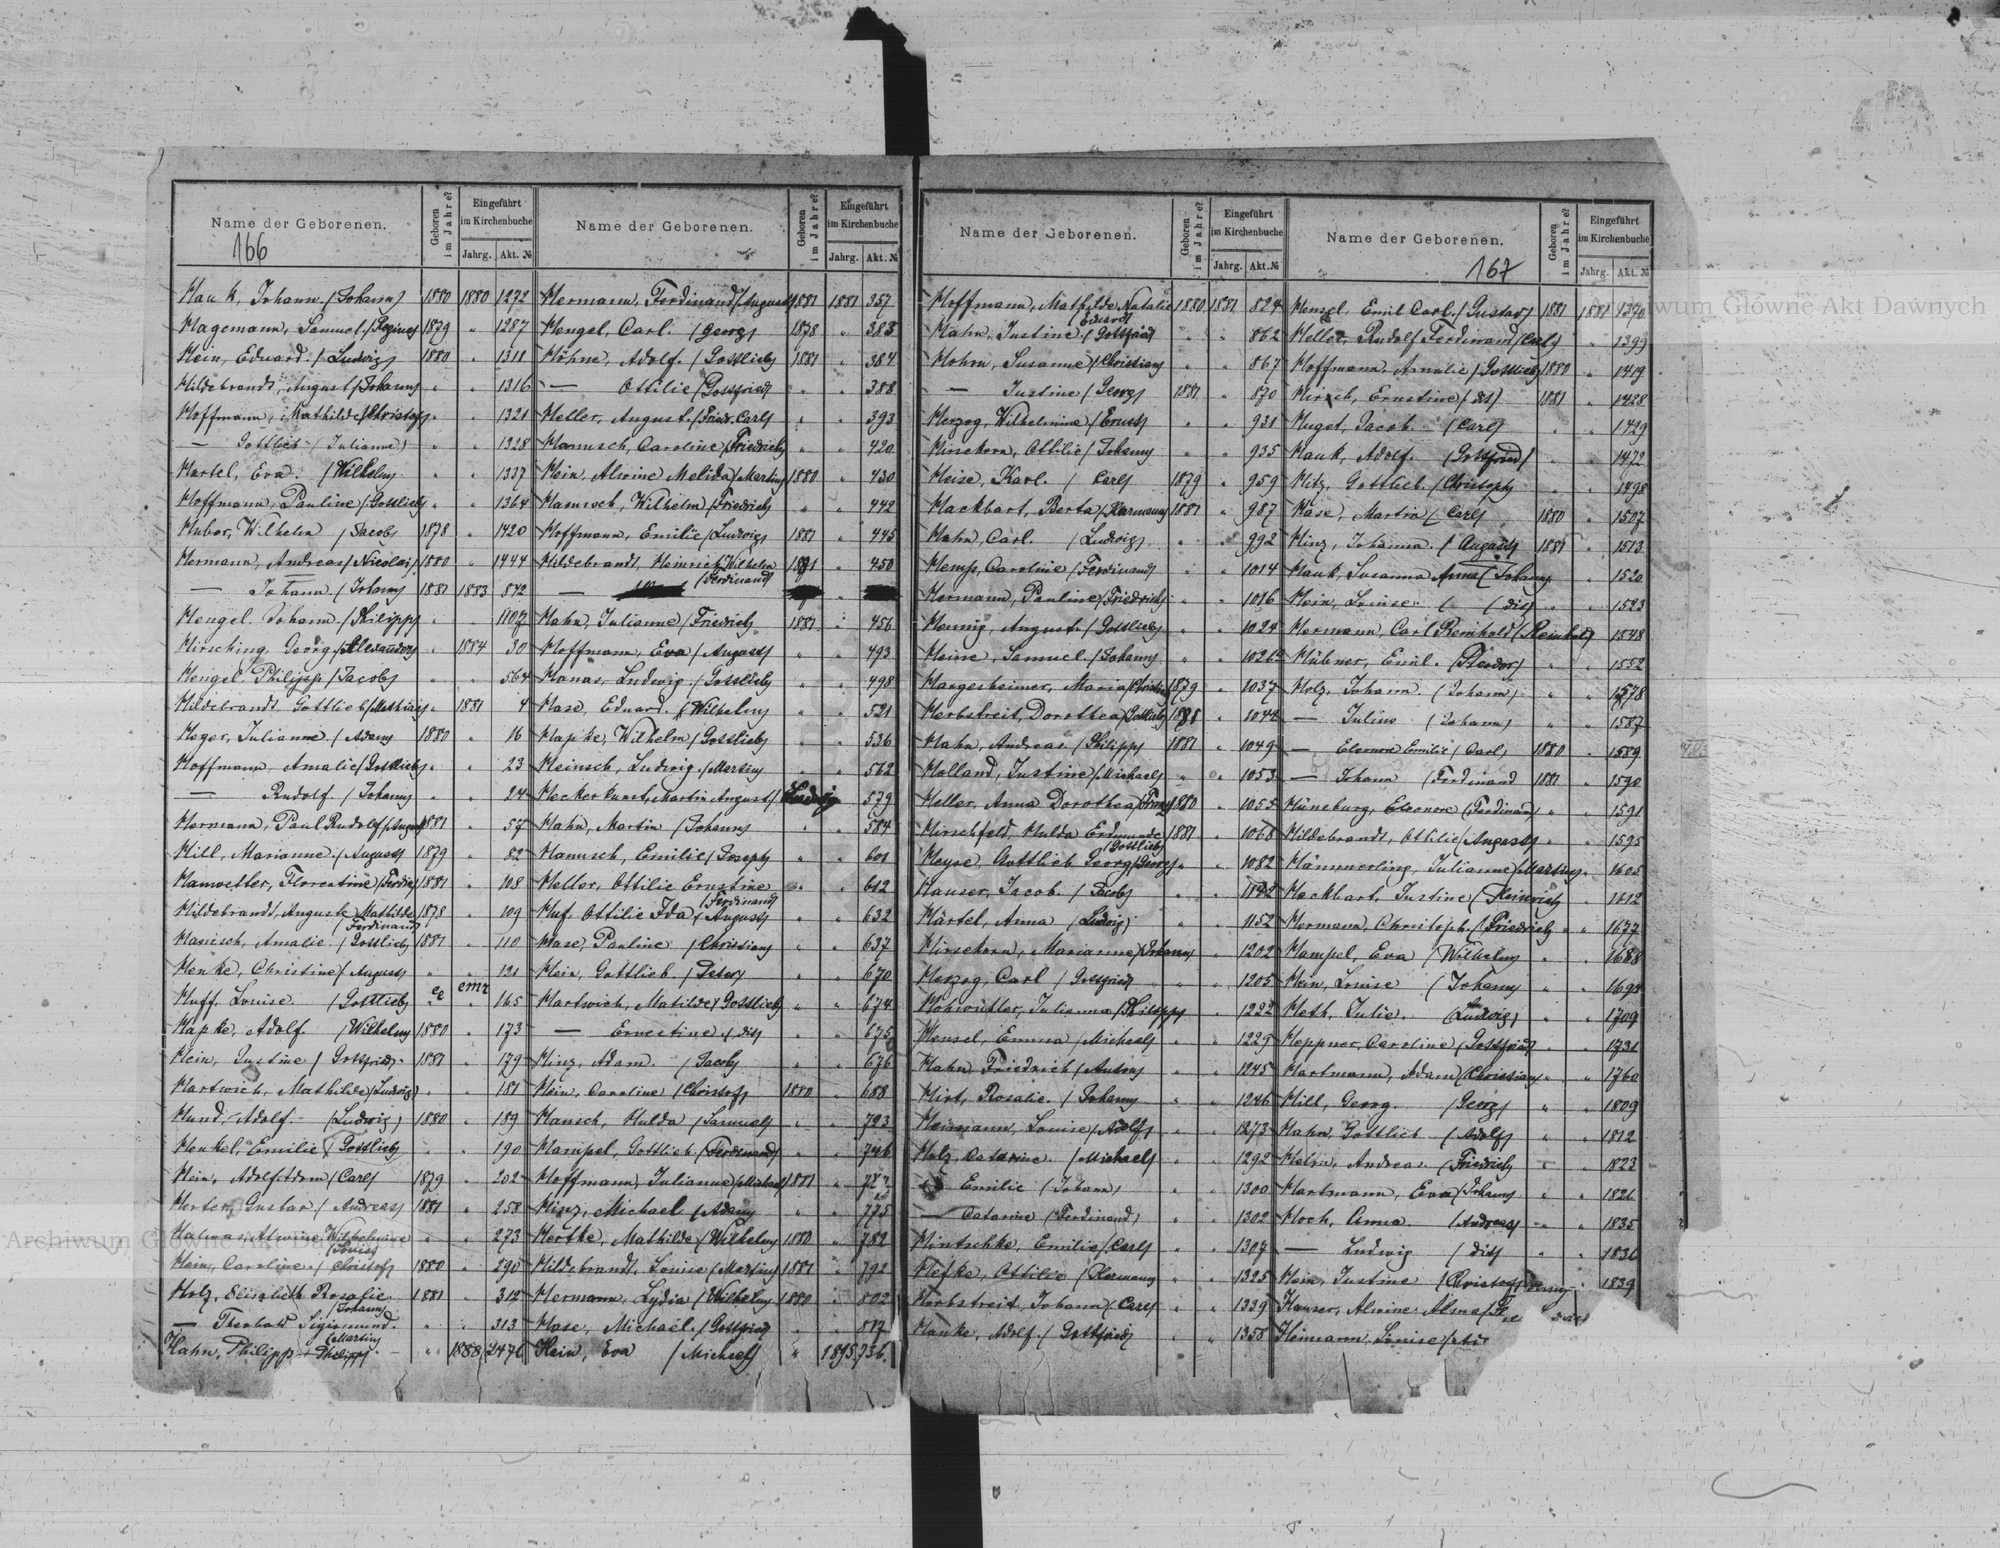 166
Name der Geborenen.
Geboren im Jahre?
Eingeführt im Kirchenbuche
Jahrg. Akt. №
Hauk, Johann /Johann/ 1880 1880 1272
Hagemann, Samuel /Regine/ 1879 " 1287
Hein, Eduard /Ludwig/ 1880 " 1311
Hildebrandt, August /Johann/ " " 1316
Hoffmann, Mathilde /Christof/ " " 1321
— Gottlieb /Julianne/ " " 1328
Hartel, Eva /Wilhelm/ " " 1337
Hoffmann, Pauline /Gottlieb/ " " 1364
Huber, Wilhelm /Jacob/ 1878 " 1420
Hermann, Andreas /Nicolai/ 1880 " 1444
— Johann /Johann/ 1881 1883 872
Hengel, Johann /Philipp/ " " 1107
Hirsching, Georg /Alexander/ " 1884 30
Hengel Philipp /Jacob/ " " 564
Hildebrandt Gottlieb /Mathias/ " 1881 4
Hoger, Julianne /Adam/ 1880 " 16
Hoffmann, Amalie /Gottlieb/ " " 23
— Rudolf /Johann/ " " 24
Hermann, Paul Rudolf /August/ 1881 " 57
Hill, Marianne /August/ 1879 " 82
Florentine 1881 " 108
Hildebrandt, Auguste Mathilde /Ferdinand/ 1878 " 109
Hanisch, Amalie /Gottlieb/ 1881 " 110
Henke, Christine /August/ " " 121
Huff, Louise /Gottlieb/ " " 165
Hapke, Adolf /Wilhelm/ 1880 " 173
Hein, Justine /Gottfried/ 1881 " 179
Hartwich, Mathilde /Ludwig/ " " 181
Hund, Adolf /Ludwig/ 1880 " 189
Henkel, Emilie /Gottlieb/ " " 190
Hein, Adolf Adam /Carl/ 1879 " 202
Herter, Gustav /Andreas/ 1881 " 258
Alwine Wilhelmine " " 273
Hein, Caroline /Christof/ 1880 " 290
Holz, Elisabeth Rosalie /Johann/ 1881 " 312
— Theobald Sigismund /Martin/ " " 313
Hahn, Philipp /Philipp/ " 1888 2476
Name der Geborenen.
Geboren im Jahre?
Eingeführt im Kirchenbuche
Jahrg. Akt. №
Hermann, Ferdinand /August/ 1881 1881 357
Hengel, Carl /Georg/ 1878 " 383
Höhne, Adolf /Gottlieb/ 1881 " 384
— Ottilie /Gottfried/ " " 388
Heller, August /Friedr. Carl/ " " 393
Hanusch, Caroline /Friedrich/ " " 420
Hein, Alwine Melida /Martin/ 1880 " 430
Wilhelm /Friedrich/ " " 442
Hoffmann, Emilie /Ludwig/ 1881 " 445
Hildebrandt, Heinrich Wilhelm /Ferdinand/ 1881 " 450
Hahn, Julianne /Friedrich/ 1881 " 456
Hoffmann, Eva /August/ " " 493
Hanas, Ludwig /Gottlieb/ " " 498
Hase, Eduard /Wilhelm/ " " 521
Hapke, Wilhelm /Gottlieb/ " " 536
Heinsch, Ludwig /Martin/ " " 562
Martin August /Ludwig/ 579
Hahn, Martin /Johann/ " " 584
Hanusch, Emilie /Joseph/ " " 601
Heller, Ottilie Ernestine /Ferdinand/ " " 612
Huf, Ottilie Ida /August/ " " 632
Hase, Pauline /Christian/ " " 637
Hein, Gottlieb /Peter/ " " 670
Hartwich, Matilde /Gottlieb/ " " 674
— Ernestine /dit/ " " 675
Hinz, Adam /Jacob/ " " 676
Hein, Caroline /Christof/ 1880 " 688
Hansch, Hulda /Samuel/ " " 723
Hampel, Gottlieb /Ferdinand/ " " 746
Hoffmann, Julianne /Michael/ 1881 "
Hinz, Michael /Adam/ " " 775
Mathilde /Wilhelm/ 1880 " 782
Hildebrandt, Louise /Martin/ 1881 " 792
Hermann, Lydia /Wilhelm/ 1880 " 802
Hase, Michael /Gottfried/ " " 817
Hein, Eva /Michael/ " 1895 736
Name der Geborenen.
Geboren im Jahre?
Eingeführt im Kirchenbuche
Jahrg. Akt. №
Hoffmann, Mathilde Natalie /Eduard/ 1880 1881 824
Hahn, Justine /Gottfried/ " " 862
Hohm, Susanne /Christian/ " " 867
— Justine /Georg/ 1881 " 870
Herzog, Wilhelmine /Ernst/ " " 931
Hirsekorn, Ottilie /Johann/ " " 935
Heise, Karl /Carl/ 1879 " 959
Hackbart, Berta /Hermann/ 1881 " 987
Hahn, Carl /Ludwig/ " " 992
Hemp, Caroline /Ferdinand/ " " 1014
Hermann, Pauline /Friedrich/ " " 1016
Hennig, August /Gottlieb/ " " 1024
Heine, Samuel /Johann/ " " 1026
Hargesheimer, Maria /Christian/ 1879 " 1037
Herbstreit, Dorothea /Gottlieb/ " 1042
Hahn, Andreas /Philipp/ 1881 " 1049
Holland, Justine /Michael/ " " 1053
Heller, Anna Dorothea /Franz/ 1880 " 1055
Hirschfeld, Hulda Erdmunde /Gottlieb/ 1881 " 1068
Heyse Gottlieb Georg /Georg/ " " 1082
Hauser, Jacob /Jacob/ " "
Härtel, Anna /Ludwig/ " " 1152
Hirsekorn, Marianne /Johann/ " " 1202
Herzog, Carl /Gottfried/ " " 1205
Julianna /Philipp/ " " 1222
Hensel, Emma /Michael/ " " 1229
Hahn Friedrich /Anton/ " " 1245
Hirt, Rosalie /Johann/ " " 1246
Heimann, Louise /Adolf/ " " 1273
Holz, Catarine /Michael/ " " 1292
Emilie /Johann/ " " 1300
— Catarine /Ferdinand/ " " 1302
Hintschke, Emilie /Carl/ " " 1307
Ottilie /Hermann/ " " 1325
Herbstreit, Johann /Carl/ " " 1339
Hanke, Adolf /Gottfried/ " " 1358
Name der Geborenen.
167
Geboren im Jahre?
Eingeführt im Kirchenbuche
Jahrg. Akt. №
Hensel, Emil Carl /Gustav/ 1881 1881 1390
Heller, Rudolf Ferdinand /Carl/ " 1399
Hoffmann, Amalie /Gottlieb/ 1880 " 1419
Hirsch, Ernstine /dit/ 1881 " 1428
Huget, Jacob /Carl/ " " 1449
Hauk, Adolf /Gottfried/ " " 1472
Hitz, Gottlieb /Christoph/ " " 1498
Hase, Martin /Carl/ 1880 " 1507
Hinz, Johanna /August/ 1881 " 1513
Hauk, Susanna Anna /Johann/ " 1520
Hein, Louise /dit/ " " 1523
Hermann, Carl Reinhold /Reinhold/ 1548
Hübner, Emil /Theodor/ " " 1552
Holz, Johann /Johann/ " " 1578
— Julius /Johann/ " " 1587
— Eleonore Emilie /Carl/ 1880 " 1589
— Johann /Ferdinand 1881 " 1590
Hüneburg, Eleonore /Ferdinand/ " " 1591
Hildebrandt, Ottilie /August/ " " 1595
Hämmerling, Julianne /Martin/ " " 1605
Hackbart, Justine /Heinrich/ " " 1612
Hermann, Christoph /Friedrich/ " " 1677
Hampel, Eva /Wilhelm/ " " 1688
Hein, Louise /Johann/ " "
Heth, Julie /Ludwig/ " " 1709
Heppner, Caroline /Gottfried/ " " 1731
Hartmann, Adam /Christian/ " " 1760
Hill, Georg /Georg/ " " 1809
Hahn, Gottlieb /Adolf/ " " 1812
Andreas /Friedrich/ " " 1823
Hartmann, Eva /Johann/ " " 1826
Hoch, Anna /Andreas/ " " 1835
— Ludwig /dit/ " " 1836
Hein, Justine " 1839
Hauser, Alwine Alma
Heimann, Louise
Archiwum Główne Akt Dawnych
Archiwum Główne Akt Dawnych